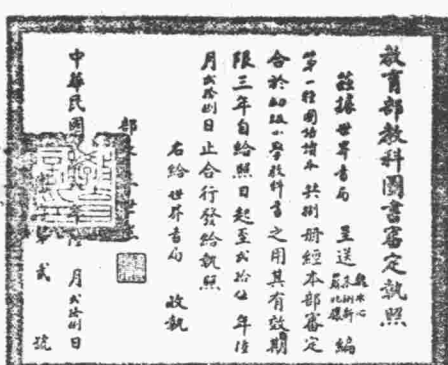 教育部教科圖書審定執照
茲據世界書局 呈送 魏冰心 編
第一種國語讀本 共捌册經本部審定
合於初級小學教科書之用其有效期
限三年自給照日起至貳拾伍年陸
月貳拾捌日止合行發給執照
右給世界書局 收執
部
中華民國 年陸月貳拾捌日
第貳號